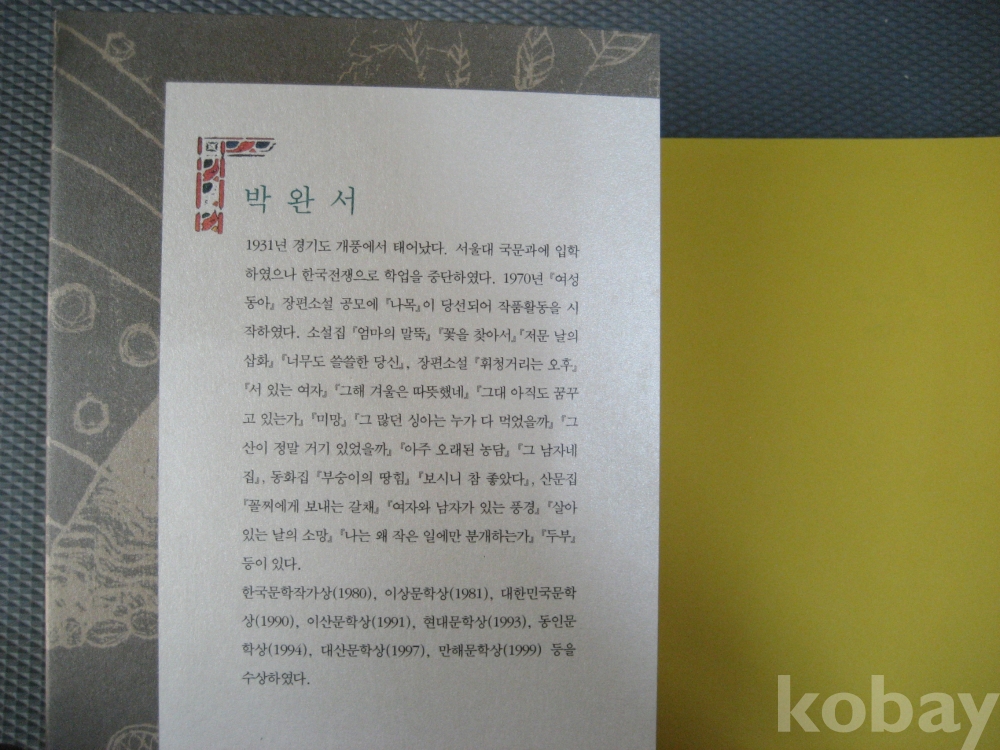 박완서
1931년 경기도 개풍에서 태어났다. 서울대 국문과에 입학
하였으나 한국전쟁으로 학업을 중단하였다. 1970년 『여성
동아』 장편소설 공모에 『나목』이 당선되어 작품활동을 시
작하였다. 소설집 『엄마의 말뚝』 『꽃을 찾아서』 『저문 날의
삽화』 『너무도 쓸쓸한 당신』, 장편소설 『휘청거리는 오후』
『서 있는 여자』 『그해 겨울은 따뜻했네』 『그대 아직도 꿈꾸
고 있는가』 『미망』 『그 많던 싱아는 누가 다 먹었을까』 『그
산이 정말 거기 있었을까』 『아주 오래된 농담』 『그 남자네
집』, 동화집 『부숭이의 땅힘』 『보시니 참 좋았다』, 산문집
『꼴찌에게 보내는 갈채』 『여자와 남자가 있는 풍경』 『살아
있는 날의 소망』 『나는 왜 작은 일에만 분개하는가』 『두부』
등이 있다.
한국문학작가상(1980), 이상문학상(1981), 대한민국문학
상(1990), 이산문학상(1991), 현대문학상(1993), 동인문
학상(1994), 대산문학상(1997), 만해문학상(1999) 등을
수상하였다.
kobay